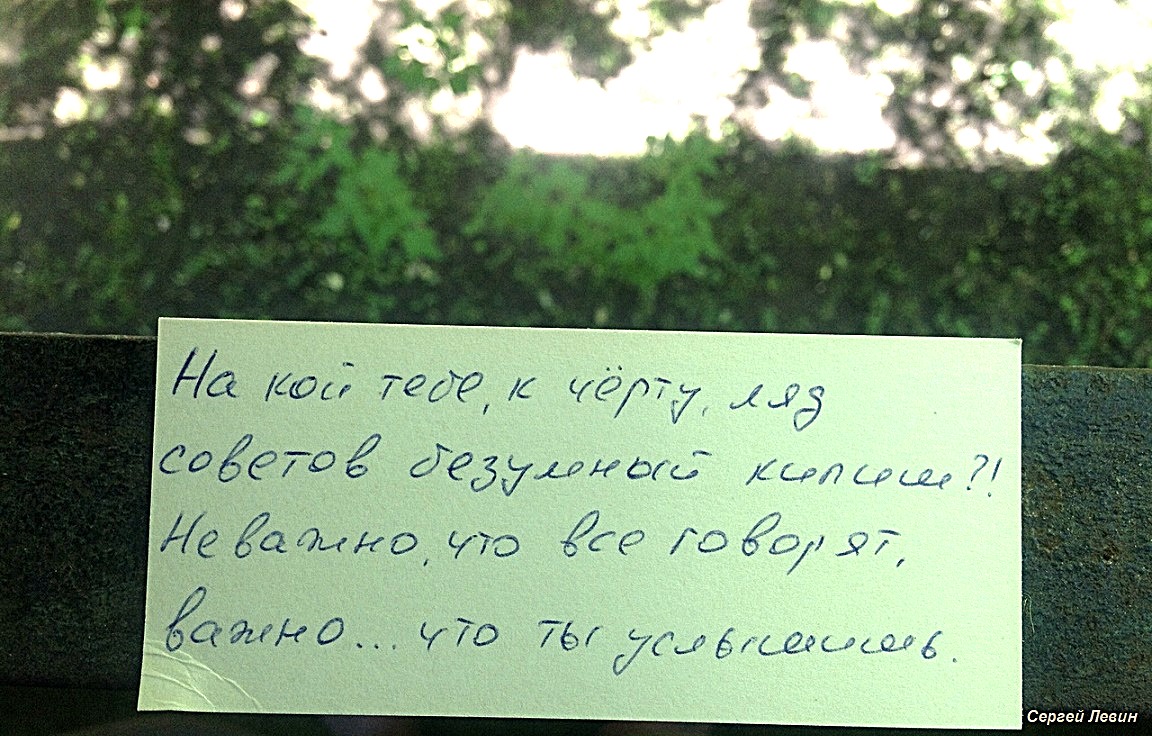 На кой тебе, к чёрту, ляд
советов безумный кипиш?!
Неважно, что все говорят,
важно... что ты услышишь.
Сергей Левин